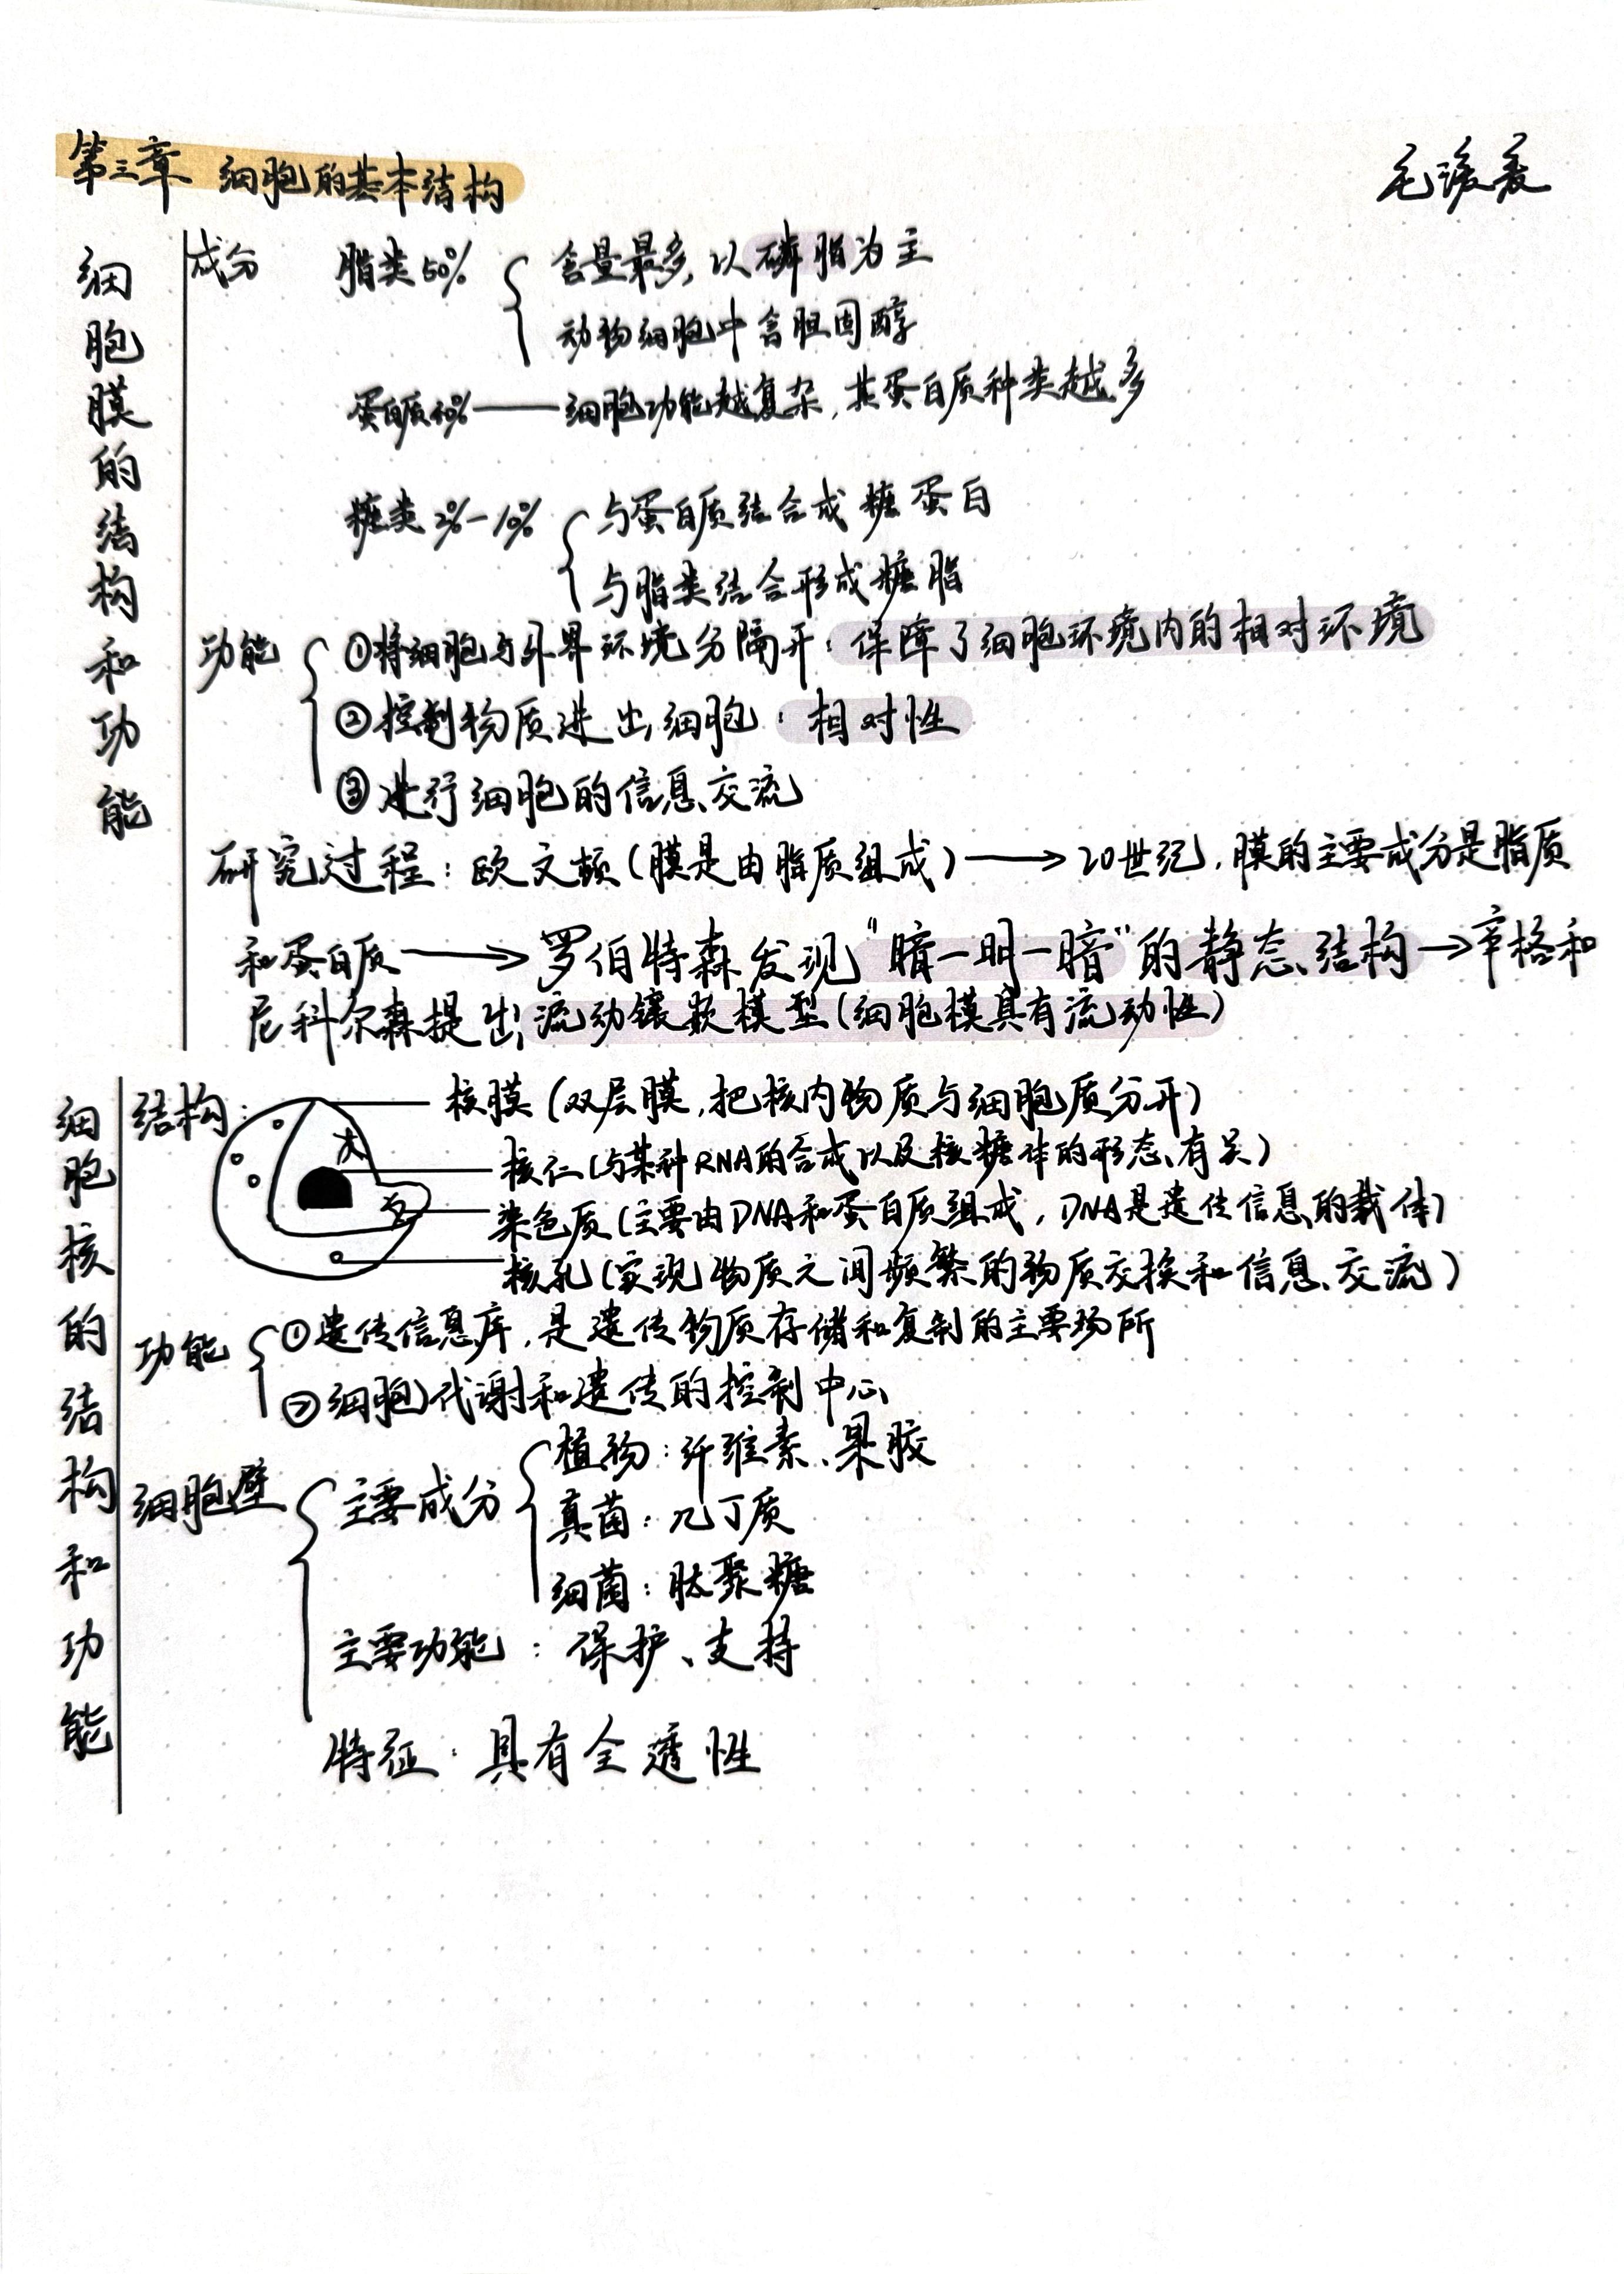 第三章 细胞的基本结构
细胞膜的结构和功能
成分 脂类50% 含量最多,以磷脂为主
动物细胞中含胆固醇
蛋白质40%——细胞功能越复杂,其蛋白质种类越多
糖类2%-10% 与蛋白质结合成糖蛋白
与脂类结合形成糖脂
功能 ①将细胞与外界环境分隔开:保障了细胞环境内的相对环境
②控制物质进出细胞:相对性
③进行细胞的信息交流
研究过程:欧文顿(膜是由脂质组成)→20世纪,膜的主要成分是脂质
和蛋白质→罗伯特森发现“暗一明一暗”的静态结构→辛格和
尼科尔森提出流动镶嵌模型(细胞模具有流动性)
细胞核的结构和功能
结构: 核膜(双层膜,把核内物质与细胞质分开)
核仁(与某种RNA的合成以及核糖体的形态有关)
染色质(主要由DNA和蛋白质组成,DNA是遗传信息的载体)
核孔(实现物质之间频繁的物质交换和信息交流)
功能 ①遗传信息库,是遗传物质存储和复制的主要场所
②细胞代谢和遗传的控制中心
细胞壁 主要成分 植物:纤维素、果胶
真菌:几丁质
细菌:肽聚糖
主要功能:保护、支持
特征:具有全透性